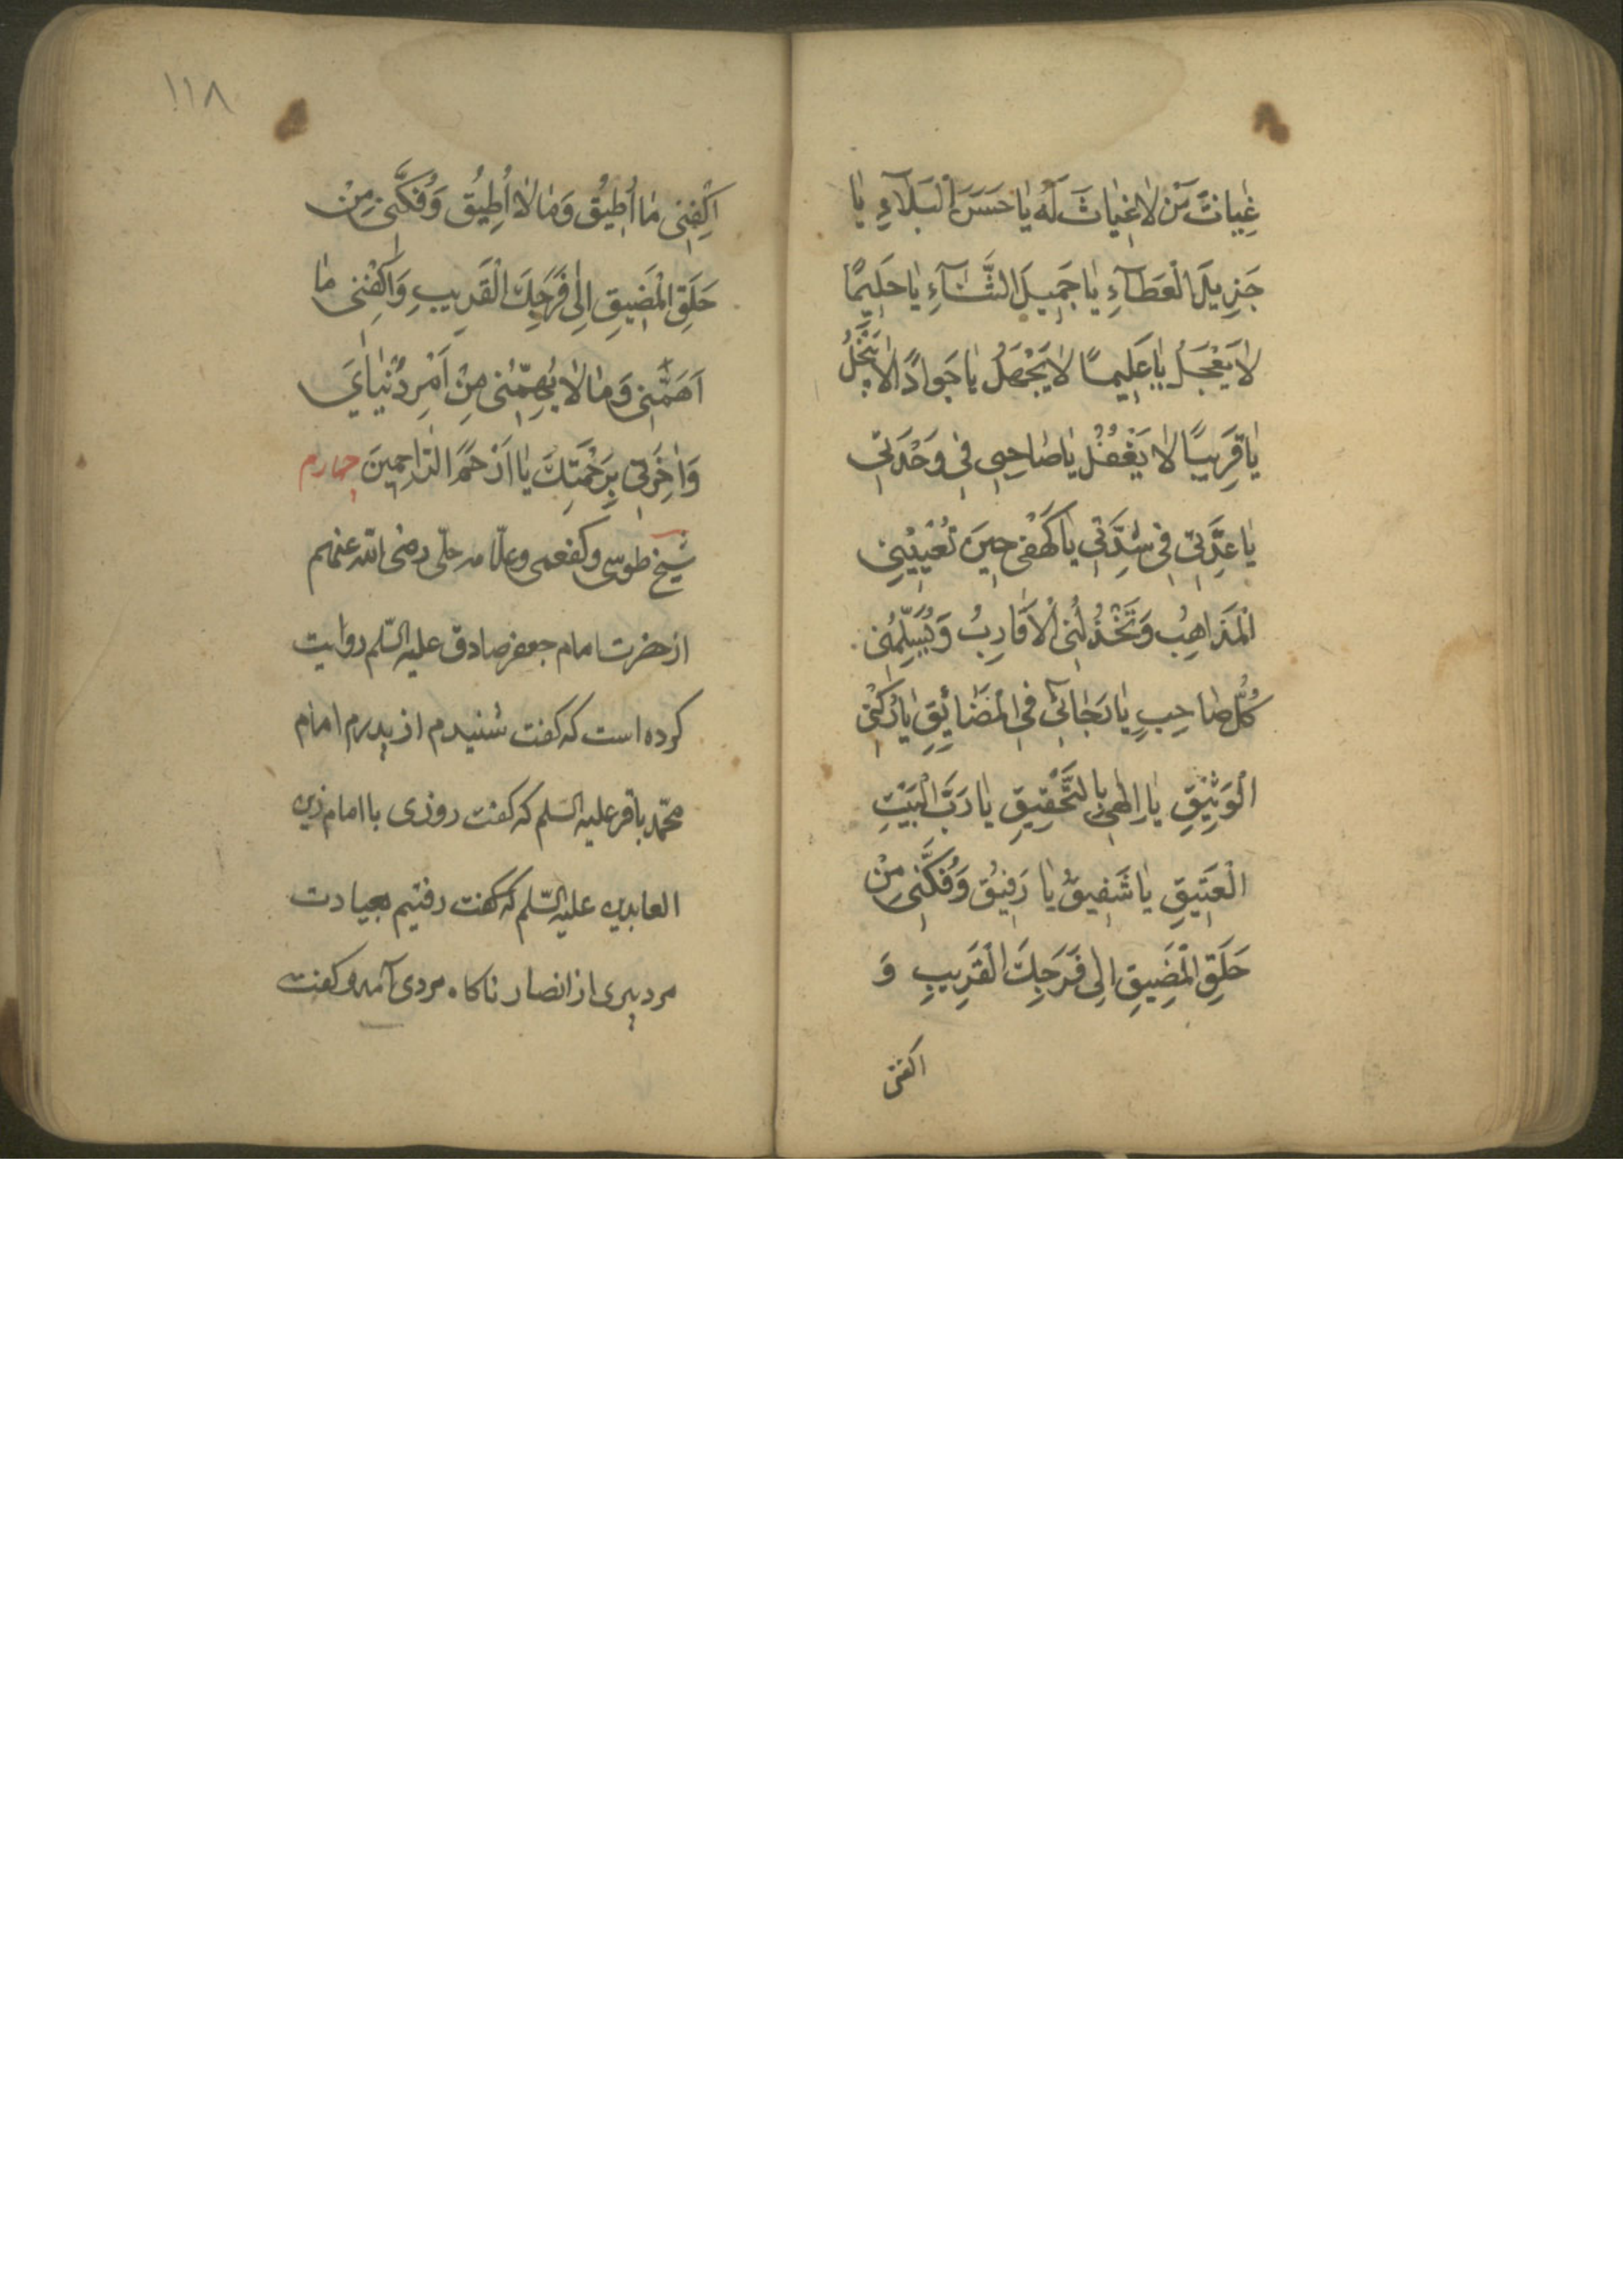 غِیاثَ مَنْ لٰا غِیاثَ لَهُ یٰا حَسَنَ الْبَلٰآءِ یٰا
جَزِیلَ الْعَطٰآءِ یٰا جَمِیلَ الثَّنٰآءِ یٰا حَلِیمًا
لٰا یَعْجَلُ یٰا عَلِیمًا لٰا یَجْهَلُ یٰا جَوادًا لٰا یَبْخَلُ
یٰا قَرِیبًا لٰا یَغْفُلُ یٰا صٰاحِبِی فِی وَحْدَتِی
یٰا عِدَّتِی فِی شِدَّتِی یٰا کَهْفِی حِینَ تُعْیِیْنِی
الْمَذٰاهِبُ وَ تَخْذُلُنِی الْاَقٰارِبُ وَ یُسَلِّمُنِی
کُلُّ صٰاحِبٍ یٰا رَجٰائِی فِی الْمَضٰائِقِ یٰا رُکْنِی
الْوَثِیْقِ یٰا اِلٰهِی بِالتَّحْقِیقِ یٰا رَبَّ الْبَیْتِ
الْعَتِیقِ یٰا شَفِیقُ یٰا رَفِیْقُ وَ فُکَّنِی مِنْ
حَلَقِ الْمَضِیقِ اِلٰی فَرَجِكَ الْقَرِیبِ وَ
اکفنی
۱۱۸
اکْفِنِی مٰا اُطِیْقُ وَ مٰا لٰا اُطِیْقُ وَ فُکَّنِی مِنْ
حَلَقِ الْمَضِیقِ اِلٰی فَرَجِكَ الْقَرِیبِ وَ اکْفِنِی مٰا
اَهَمَّنِی وَ مٰا لٰا یُهِمُّنِی مِنْ اَمْرِ دُنْیٰایَ
وَ اٰخِرَتِی بِرَحْمَتِكَ یٰا اَرْحَمَ الرّٰاحِمِینَ چهارم
شیخ طوسی و کفعمی و علّامه حلّی رضی الله عنهم
از حضرت امام جعفر صادق علیه السّلم روایت
کرده است که کفت شنیدم از پدرم امام
محمّد باقر علیه السّلم که کفت روزی با امام زین
العابدین علیه السّلم که کفت رفتیم بعیادت
مرد پیری از انصار ناکاه مردی آمد و کفت